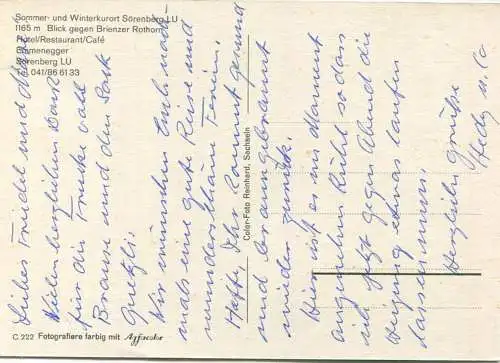 Sommer- und Winterkurort Sörenberg LU
1165 m Blick gegen Brienzer Rothorn
Hotel/Restaurant/Café
Blumenegger
Sörenberg LU
Tel. 041/86 61 33
Liebes Trudel und
Vielen herzlichen Dank
für die Trucke vohl
Brause und den Sack
Guetzli.
Wir wünschen Euch noch-
mals eine gute Reise und
wunderschöne Ferien.
Hoffe, Ihr kommt gesund
und braungebrannt
wieder zurück.
Hier ist es im Moment
angenehm kühl sodass
ich jetzt gegen Abend die
Heizung etwas laufen
lassen muss.
Herzlichen Grüsse
Hedy u. Co
Color-Foto Reinhard, Sachseln
C 222 Fotografiere farbig mit Agfacolor